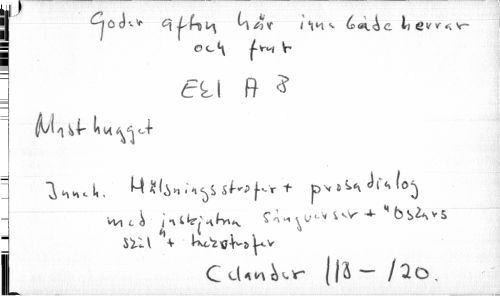 Goder afton här inne både herrar
och frur
EEI A 8
Masthugget
Inneh. Hälsningsstrofer + prosadialog
med inskjutna sångverser + "Oskars
säl" + tackstrofer
Celander 118 - 120.